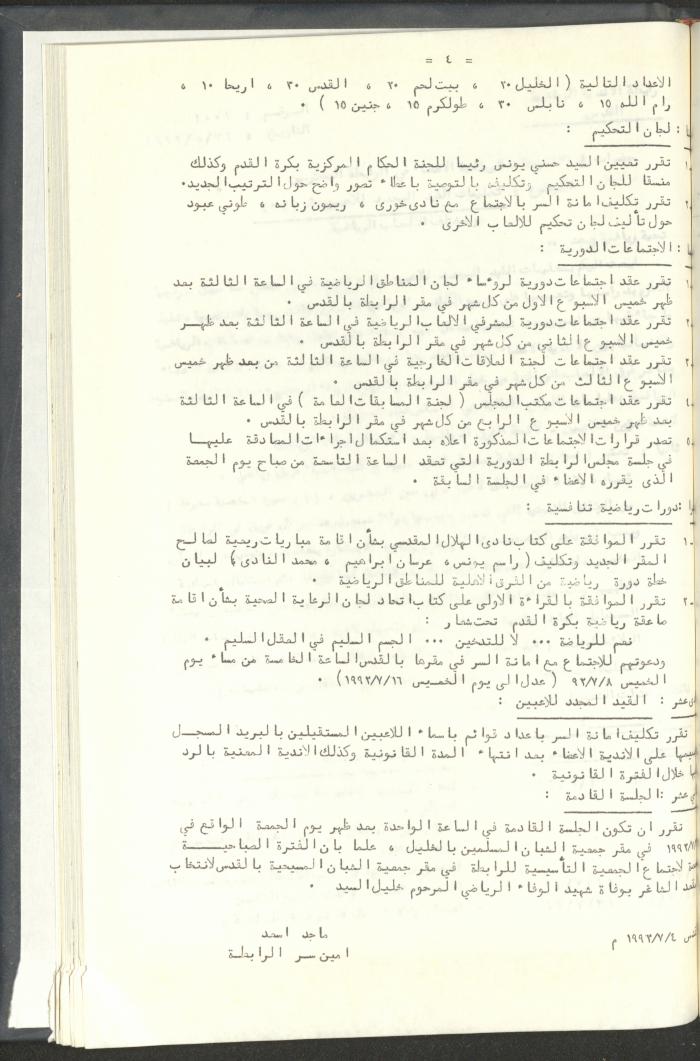 = ٤ =
الاعداد التالية (الخليل ٢٠ ، بيت لحم ٢٠ ، القدس ٣٠ ، اريحا ١٠ ،
رام الله ١٥ ، نابلس ٣٠ ، طولكرم ١٥ ، جنين ١٥ ) .
: لجان التحكيم :
تقرر تعيين السيد حسني يونس رئيسا للجنة الحكام المركزية بكرة القدم وكذلك
منسقا للجان التحكيم وتكليفه بالتوصية باعطاء تصور واضح حول الترتيب الجديد.
تقرر تكليف امانة السر بالاجتماع مع نادى خورى ، ريمون زبانه ، طوني عبود
حول تأليف لجان تحكيم للالعاب الاخرى .
: الاجتماعات الدورية :
تقرر عقد اجتماعات دورية لروءساء لجان المناطق الرياضية في الساعة الثالثة بعد
ظهر خميس الاسبوع الاول من كل شهر في مقر الرابطة بالقدس .
تقرر عقد اجتماعات دورية لمشرفي الالعاب الرياضية في الساعة الثالثة بعد ظهر
خميس الاسبوع الثاني من كل شهر في مقر الرابطة بالقدس .
تقرر عقد اجتماعات لجنة العلاقات الخارجية في الساعة الثالثة من بعد ظهر خميس
الاسبوع الثالث من كل شهر في مقر الرابطة بالقدس .
تقرر عقد اجتماعات مكتب المجلس ( لجنة المسابقات العامة ) في الساعة الثالثة
بعد ظهر خميس الاسبوع الرابع من كل شهر في مقر الرابطة بالقدس .
٥. تصدر قرارات الاجتماعات المذكورة اعلاه بعد استكمال اجراءات المصادقة عليها
في جلسة مجلس الرابطة الدورية التي تعقد الساعة التاسعة من صباح يوم الجمعة
الذى يقرره الاعضاء في الجلسة السابقة .
: دورات رياضية تنافسية :
١- تقرر الموافقة على كتاب نادى الهلال المقدسي بشأن اقامة مباريات ريعية لصالح
المقر الجديد وتكليف ( راسم يونس ، عرسان ابراهيم ، محمد النادى ) لبيان
خطة دورة رياضية من الفرق الاهلية للمناطق الرياضية .
٢- تقرر الموافقة بالقراءة الاولى على كتاب اتحاد لجان الرعاية الصحية بشأن اقامة
مسابقة رياضية بكرة القدم تحت شعار :
نعم للرياضة ... لا للتدخين ... الجسم السليم في العقل السليم .
ودعوتهم للاجتماع مع امانة السر في مقرها بالقدس الساعة الخامسة من مساء يوم
الخميس ٩٣/٧/٨ ( عدل الى يوم الخميس ١٩٩٣/٧/١٦) .
عشر : القيد المجدد للاعبين :
تقرر تكليف امانة السر باعداد قوائم باسماء اللاعبين المستقيلين بالبريد المسجل
على الاندية الاعضاء بعد انتهاء المدة القانونية وكذلك الاندية المعنية بالرد
خلال الفترة القانونية .
عشر : الجلسة القادمة :
تقرر ان تكون الجلسة القادمة في الساعة الواحدة بعد ظهر يوم الجمعة الواقع في
في مقر جمعية الشبان المسلمين بالخليل ، علما بان الفترة الصباحية
لاجتماع الجمعية التأسيسية للرابطة في مقر جمعية الشبان المسيحية بالقدس لانتخاب
الشاغر بوفاة شهيد الوفاء الرياضي المرحوم خليل السيد .
ماجد اسعد
١٩٩٣/٧/٤ م
امين سر الرابطة